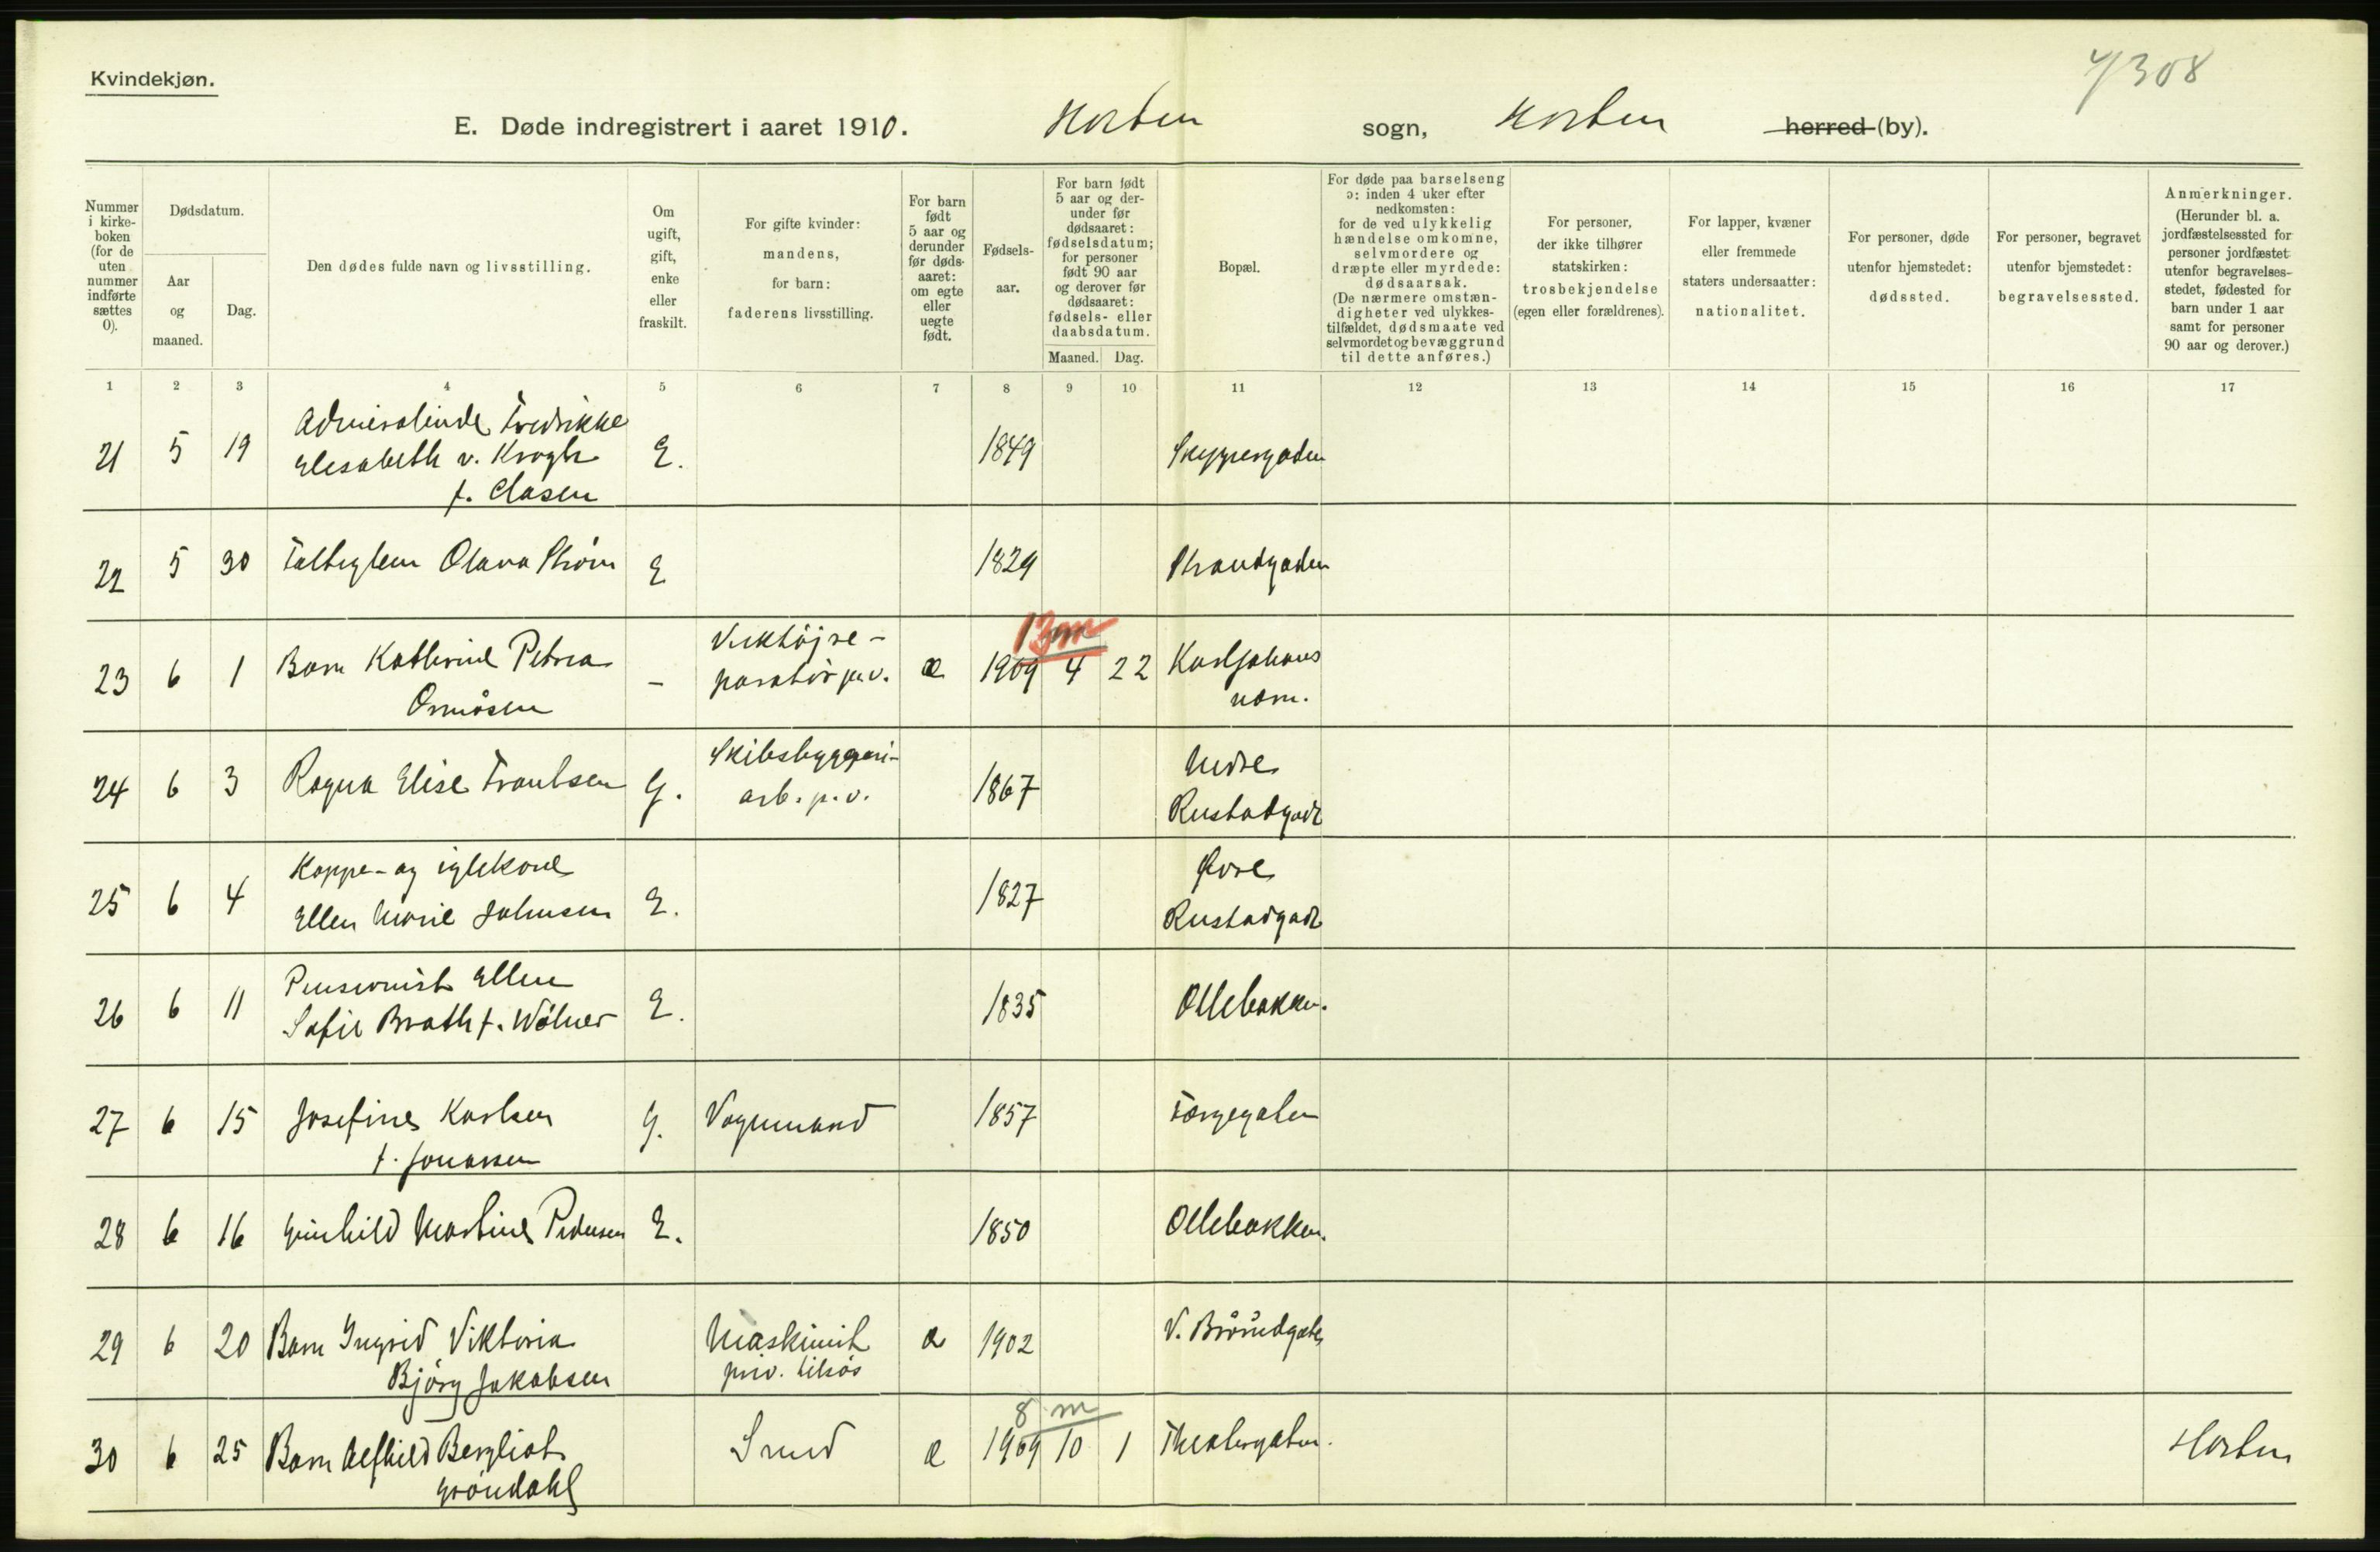 Kvindekjøn.
4/308
E. Døde indregistrert i aaret 1910. Horten sogn, Horten herred (by).
Nummer i kirke-boken (for de uten nummer indførte sættes 0).
Dødsdatum.
Aar og maaned.
Dag.
Den dødes fulde navn og livsstilling.
Om ugift, gift, enke eller fraskilt.
For gifte kvinder: mandens, for barn: faderens livsstilling.
For barn født 5 aar og derunder før døds-aaret: om egte eller uegte født.
Fødsels-aar.
For barn født 5 aar og der-under før dødsaaret: fødselsdatum; for personer født 90 aar og derover før dødsaaret: fødsels- eller daabsdatum.
Maaned. Dag.
Bopæl.
For døde paa barselseng ɔ: inden 4 uker efter nedkomsten: for de ved ulykkelig hændelse omkomne, selvmordere og dræpte eller myrdede: dødsaarsak. (De nærmere omstæn-digheter ved ulykkes-tilfældet, dødsmaate ved selvmordet og bevæggrund til dette anføres.)
For personer, der ikke tilhører statskirken: trosbekjendelse (egen eller forældrenes).
For lapper, kvæner eller fremmede staters undersaatter: nationalitet.
For personer, døde utenfor hjemstedet: dødssted.
For personer, begravet utenfor bjemstedet: begravelsessted.
Anmerkninger. (Herunder bl. a. jordfæstelsessted for personer jordfæstet utenfor begravelses-stedet, fødested for barn under 1 aar samt for personer 90 aar og derover.)
1 2 3 4 5 6 7 8 9 10 11 12 13 14 15 16 17
21 5 19 Admiralinde Fredrikke Elisabeth v. Krogh f. Clasen E. 1849 Skippergaden
22 5 30 Olava Strøm E 1829 Strandgaden
13m
23 6 1 Barn Kathrine Petrea - Verktøjre-paratør p.v. e 1909 4 22 Karljohans værn.
24 6 3 Ragna Elise Frantsen G. Skibsbyggeri-arb. p.v. 1867 Nedre Rustadgade
25 6 4 Koppe- og iglekone Ellen Marie Johnsen E. 1827 Øvre Rustadgade
26 6 11 Pensionist Ellen Sofie Brath f. Wølner E. 1835 Ollebakken.
27 6 15 Josefine Karlsen f. Jonassen G. Vognmand 1857 Færgegaten
28 6 16 Gunhild Martine Pedersen E. 1850 Ollebakken.
29 6 20 Barn Ingrid Viktoria Bjørg Jakobsen Maskinist priv. tilsøs e 1902 V. Brårudgaten
8 m
30 6 25 Barn Alfhild Bergliot Grøndahl Smed e 1909 10 1 Theatergaten. Horten